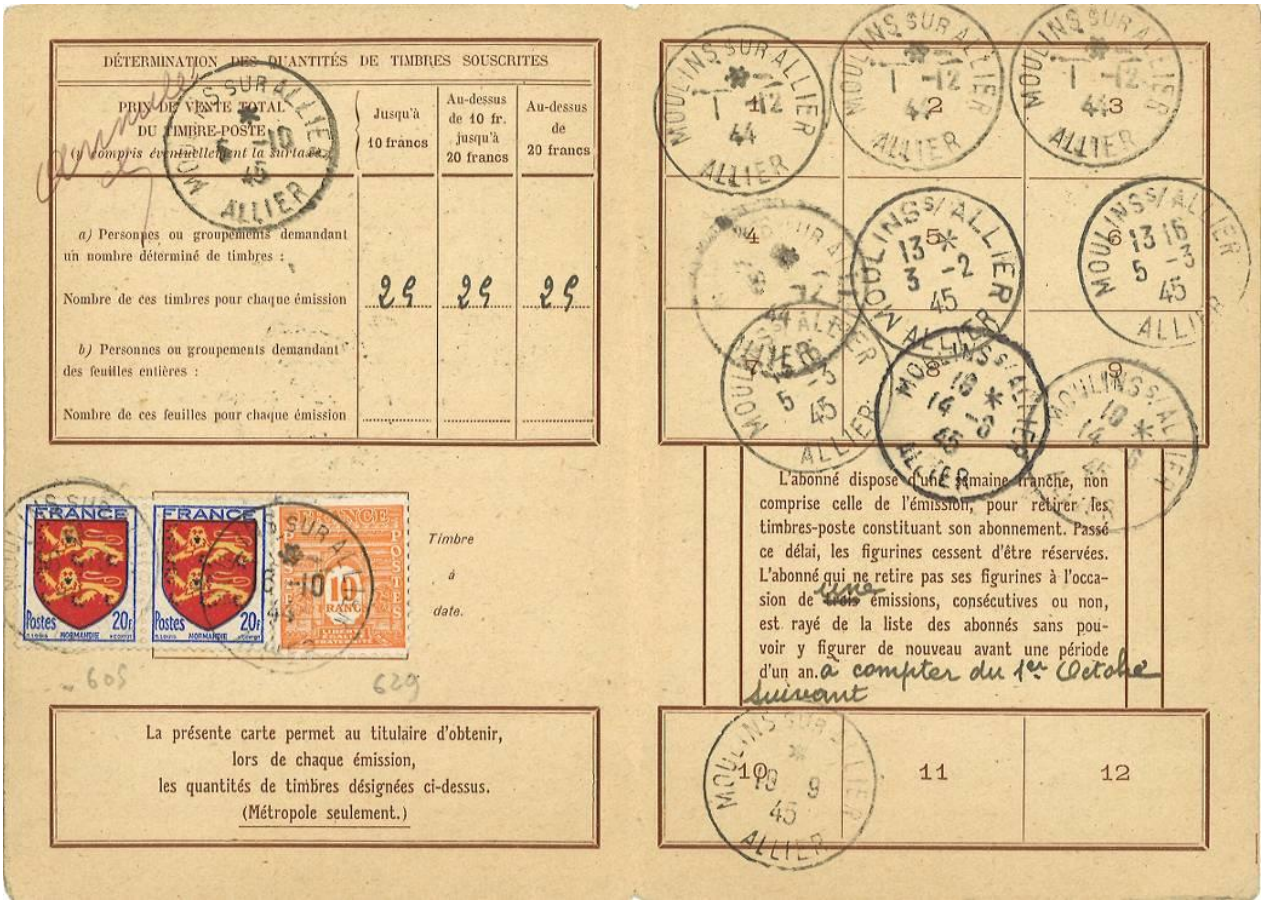 DÉTERMINATION DES QUANTITÉS DE TIMBRES SOUSCRITES
PRIX DE VENTE TOTAL
DU TIMBRE-POSTE
(y compris éventuellement la surtaxe
Jusqu'à
10 francs
Au-dessus
de 10 fr.
jusqu'à
20 francs
Au-dessus
de
20 francs
annulé
MOULINS SUR ALLIER
-10
45
ALLIER
a) Personnes ou groupements demandant
un nombre déterminé de timbres :
Nombre de ces timbres pour chaque émission 25 25 25
b) Personnes ou groupements demandant
des feuilles entières :
Nombre de ces feuilles pour chaque émission
FRANCE
Postes 20F
NORMANDIE
FRANCE
Postes 20F
NORMANDIE
FRANCE
POSTES
10
FRANCS
LIBERTÉ
ÉGALITÉ
FRATERNITÉ
Timbre
à
date.
605
629
La présente carte permet au titulaire d'obtenir,
lors de chaque émission,
les quantités de timbres désignées ci-dessus.
(Métropole seulement.)
1
MOULINS SUR ALLIER
1 -12
44
ALLIER
2
MOULINS SUR ALLIER
1 -12
44
ALLIER
3
MOULINS SUR ALLIER
1 -12
44
ALLIER
4
SUR ALLIER
44
ALLIER
5
MOULINS S/ALLIER
13 *
3 -2
45
ALLIER
6
MOULINS S/ALLIER
13 16
5 -3
45
ALLIER
MOULINS S/ALLIER
5 -3
45
ALLIER
8
MOULINS S/ALLIER
18 *
14 -6
45
ALLIER
9
MOULINS S/ALLIER
18 *
14
L'abonné dispose d'une semaine franche, non
comprise celle de l'émission, pour retirer les
timbres-poste constituant son abonnement. Passé
ce délai, les figurines cessent d'être réservées.
L'abonné qui ne retire pas ses figurines à l'occa-
sion de trois une émissions, consécutives ou non,
est rayé de la liste des abonnés sans pou-
voir y figurer de nouveau avant une période
d'un an. à compter du 1er Octobre
suivant
10
MOULINS SUR ALLIER
9
45
ALLIER
11
12